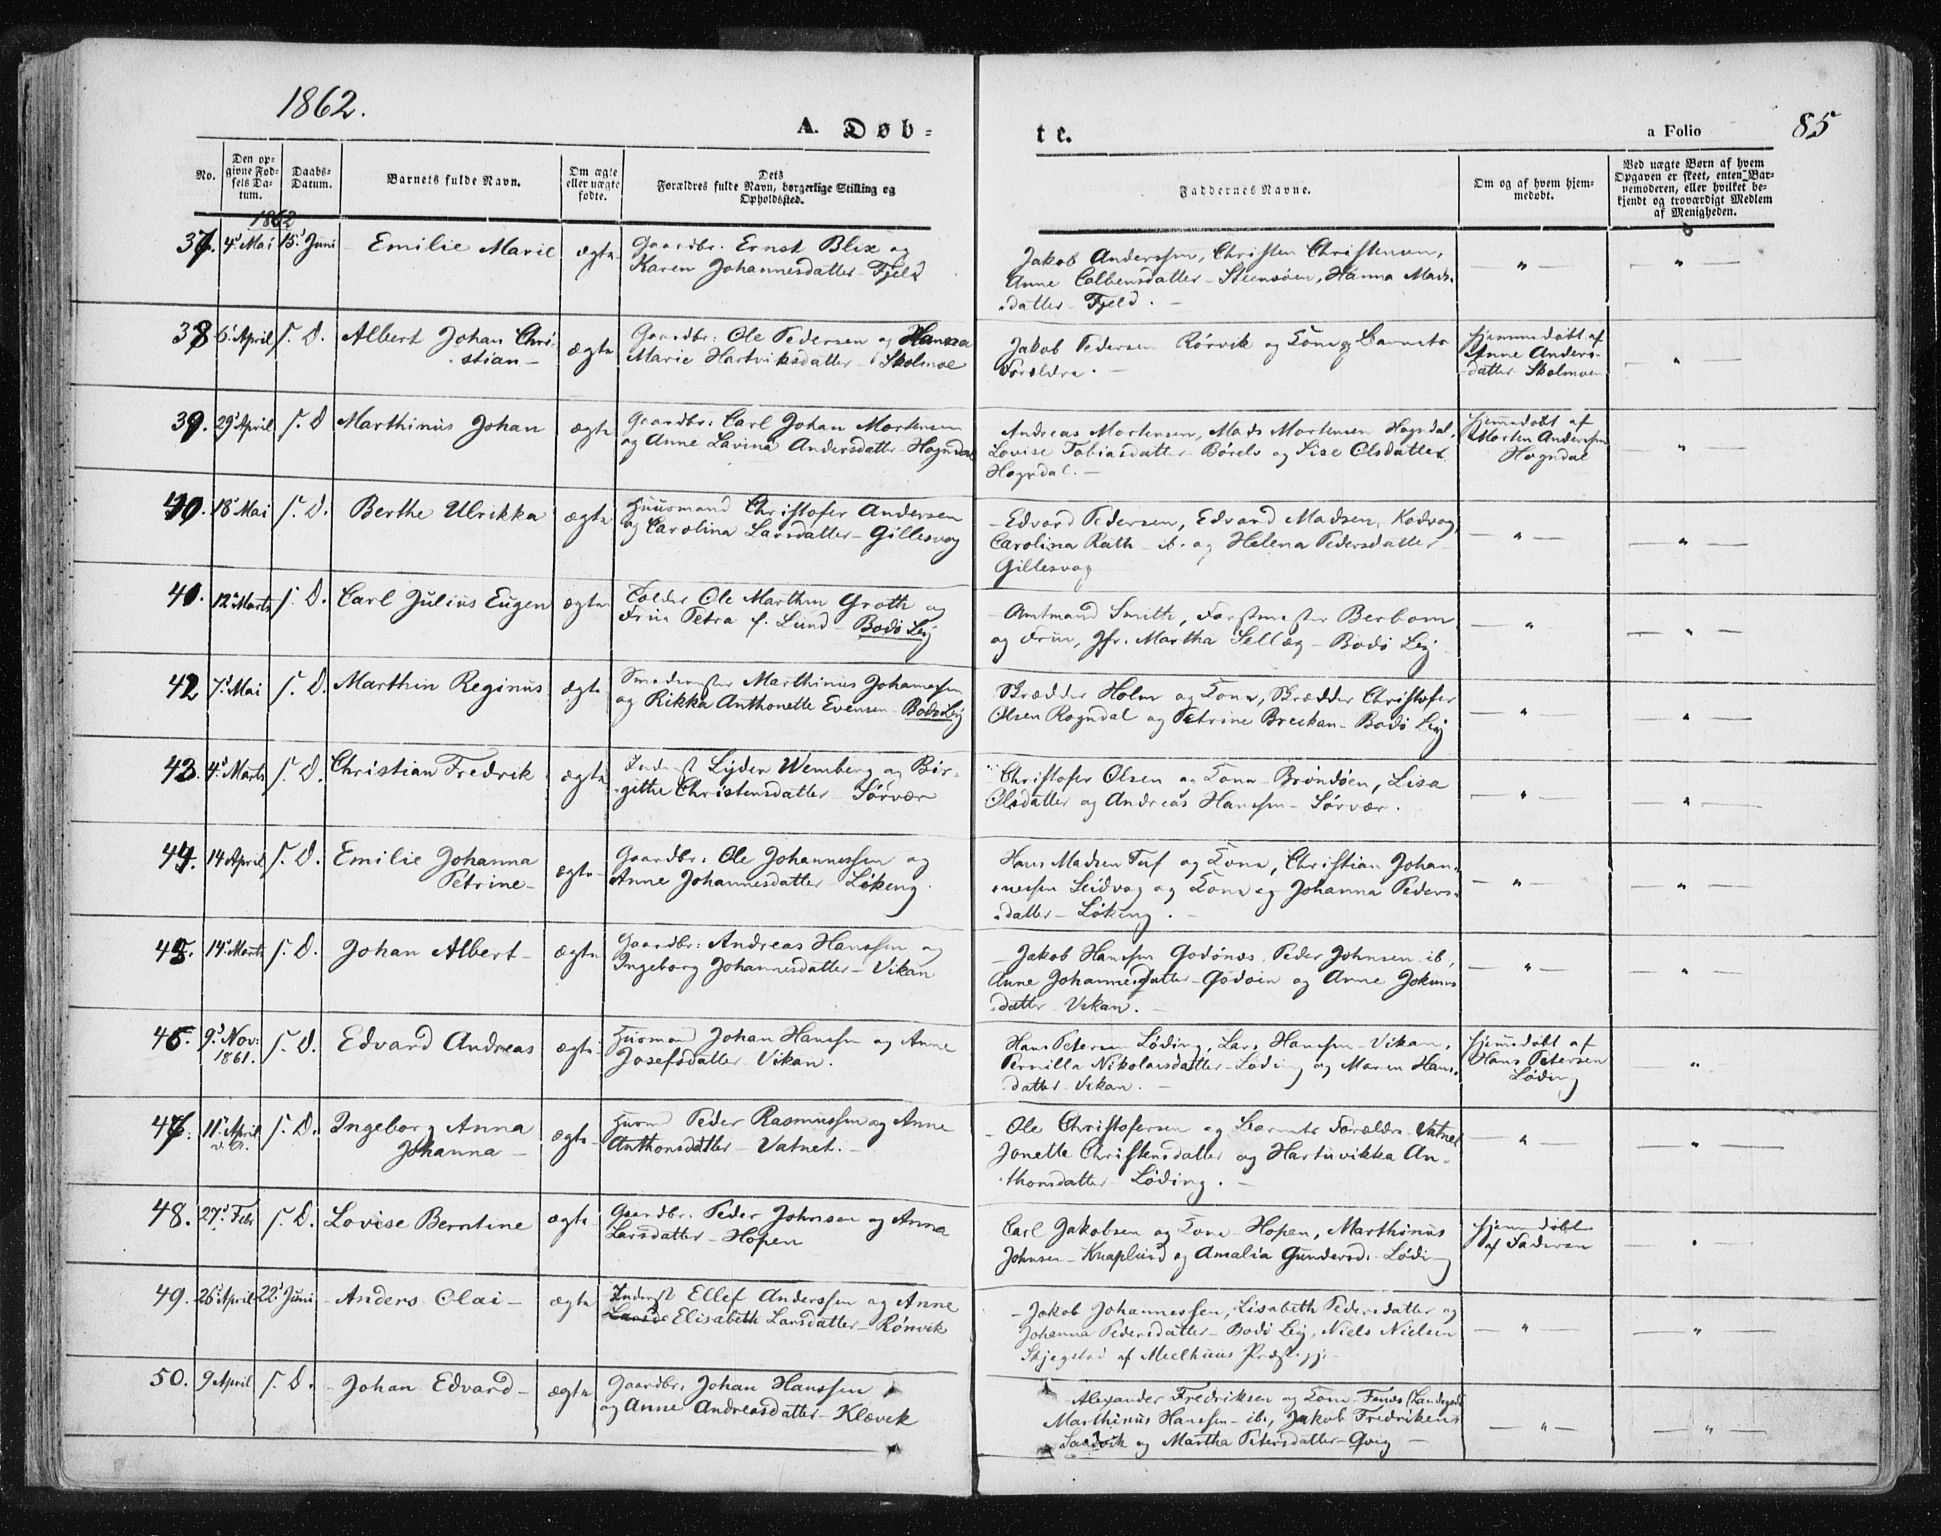 1862.
A. Døb=
te.
a Folio
85
No.
Den op-
givne Fød-
sels Da-
tum.
Daabs-
Datum.
Barnets fulde Navn.
Om ægte
eller uægte
fødte.
Dets
Forældres fulde Navn, borgerlige Stilling og
Opholdssted.
Faddernes Navne.
Om og af hvem hjem-
medøbt.
Ved uægte Børn af hvem
Opgaven er skeet, enten Bar-
nemoderen, eller hvilket be-
kjendt og troværdigt Medlem
af Menigheden.
1862
37. 4' Mai 15' Juni Emilie Marie ægte Gaardbr. Ernst Blix og
Karen Johannesdatter - Fjeld
Jakob Anderssen, Christen Christensen,
Anne Colbensdatter - Steensøen, Hanna Mads-
datter - Fjeld. -
— " — — " —
38 6' April s. D. Albert Johan Chri-
stian - ægte Gaardbr: Ole Pedersen og Hanna
Marie Hartviksdatter - Skolmoe
Jakob Pedersen Rørvik og Kone og Barnets
Forældre. -
Hjemmedøbt af
Anne Anders-
datter Skolmoen
— " —
39. 29' April s. D Marthinus Johan ægte Gaardbr: Carl Johan Mortensen
og Anne Lavina Andersdatter - Hogndal
Andreas Mortensen, Mads Mortensen Hogndal,
Lovise Tobiasdatter Børelv og Lise Olsdatter
Hogndal. -
Hjemmedøbt af
Morten Anderssen
Hogndal
— " —
40. 18' Mai s. D. Berthe Ulrikka ægte Huusmand Christofer Andersen
og Carolina Larsdatter - Gillesvag
- Edvard Pedersen, Edvard Madsen, Kodvag
Carolina Rath - ib. og Helena Pedersdatter -
Gillesvag
— " — — " —
41. 12' Marts s. D. Carl Julius Eugen ægte Tolder Ole Marthin Groth og
Frue Petra f. Lund - Bodø Leij
- Amtmand Smith, Forstmester Berbom
og Frue, Jfr. Martha Sellæg - Bodø Leij
— " — — " —
42 7' Mai s. D. Marthin Reginus ægte Smedemester Marthinus Johannessen
og Rikka Anthonette Evensen - Bodø Leij
Skrædder Holm og Kone, Skrædder Christofer
Olsen Rogndal og Petrine Breckan - Bodø Leij
— " — — " —
43. 4' Marts s. D. Christian Fredrik ægte Inderst Lyder Wemberg og Bir-
githe Christensdatter - Sørvær
Christofer Olsen og Kone - Brøndøen, Lisa
Olsdatter og Andreas Hanssen - Sørvær.
— " — — " —
44. 14 April s. D. Emilie Johanna
Petrine - ægte Gaardbr: Ole Johannessen og
Anne Johannesdatter - Løkeng.
Hans Madsen Tuf og Kone, Christian Johan-
nessen Seidvag og Kone og Johanna Peders-
datter - Løkeng. -
— " — — " —
45. 14' Marts s. D. Johan Albert - ægte Gaardbr: Andreas Hanssen og
Ingeborg Johannesdatter - Vikan
- Jakob Hanssen Godønes, Peder Johnsen ib.,
Anne Johannesdatter - Godøen og Anne Johns
datter - Vikan.
— " — — " —
46. 9' Nov:
1861. s. D. Edvard Andreas ægte Husmand Johan Hanssen og Anne
Josefsdatter - Vikan.
Hans Petersen Løding, Lars Hanssen - Vikan,
Pernilla Nikolaisdatter - Løding og Maren Hans-
datter - Vikan. -
Hjemmedøbt af
Hans Petersen
Løding
— " —
47. 11' April s. D. Ingeborg Anna
Johanna - ægte Husmd Peder Rasmussen og Anne
Anthonsdatter - Vatnet. -
- Ole Christofersen og Barnets Forældre Vatnet
Jonette Christensdatter og Hartuvikka An-
thonsdatter - Løding. -
— " — — " —
48. 27' Febr s. D. Lovise Berntine ægte Gaardbr. Peder Johnsen og Anna
Larsdatter - Hopen
Carl Jakobsen og Kone - Hopen, Marthinus
Johnsen - Knaplund og Amalia Gundersd: - Løding
Hjemmedøbt
af Faderen
— " —
49. 26' April 22' Juni - Anders Olai - ægte Inderst Ellef Anderssen og Anne
Larsda Elisabeth Larsdatter - Rønvik
- Jakob Johannessen, Lisabeth Pedersdatter og
Johanna Pedersdatter - Bodø Leij, Niels Nielsen
Skjegstad af Meelhuus Præstegj: -
— " — — " —
50. 9 April s. D. - Johan Edvard - ægte Gaardbr. Johan Hanssen
og Anne Andreasdatter - Klævik
Alexander Fredriksen og Kone - Fenes (Landegode
Marthinus Hanssen - ib:, Jakob Fredriksens
Sandvik og Martha Petersdatter - Qvig -
— " — — " —